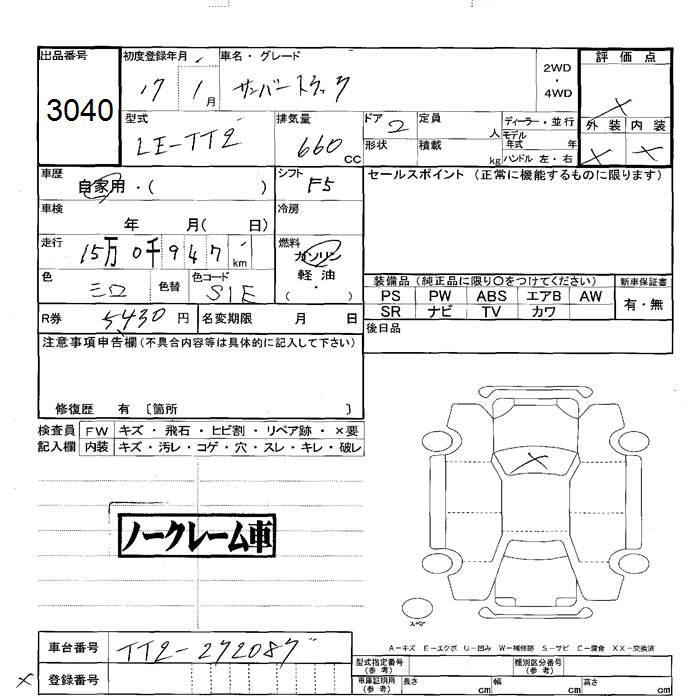 出品番号 初度登録年月 車名・グレード 2WD・4WD 評価点
3040 17 1月 サンバートラック ×
型式 排気量 ドア 2 定員 人 ディーラー・並行 外装 内装
LE-TT2 660 CC 形状 積載 kg モデル年式 年 × ×
ハンドル 左・右
車歴 自家用・( ) シフト F5 セールスポイント (正常に機能するものに限ります)
車検 年 月( 日) 冷房
走行 15万 0千 9 4 7 km 燃料 ガソリン
軽油
( )
色 シロ 色替 色コード 51E 装備品 (純正品に限り○をつけてください) 新車保証書
PS PW ABS エアB AW 有・無
SR ナビ TV カワ
R券 5,430 円 名変期限 月 日 後日品
注意事項申告欄 (不具合内容等は具体的に記入して下さい)
修復歴 有 〔箇所 〕
検査員 FW キズ・飛石・ヒビ割・リペア跡・×要
記入欄 内装 キズ・汚レ・コゲ・穴・スレ・キレ・破レ
×
ノークレーム車
スペア
A-キズ E-エクボ U-凹み W-補修跡 S-サビ C-腐食 XX-交換済
車台番号 TT2-272087
× 登録番号
型式指定番号 (参考) 類別区分番号 (参考)
車庫証明用 (参考) 長さ cm 幅 cm 高さ cm